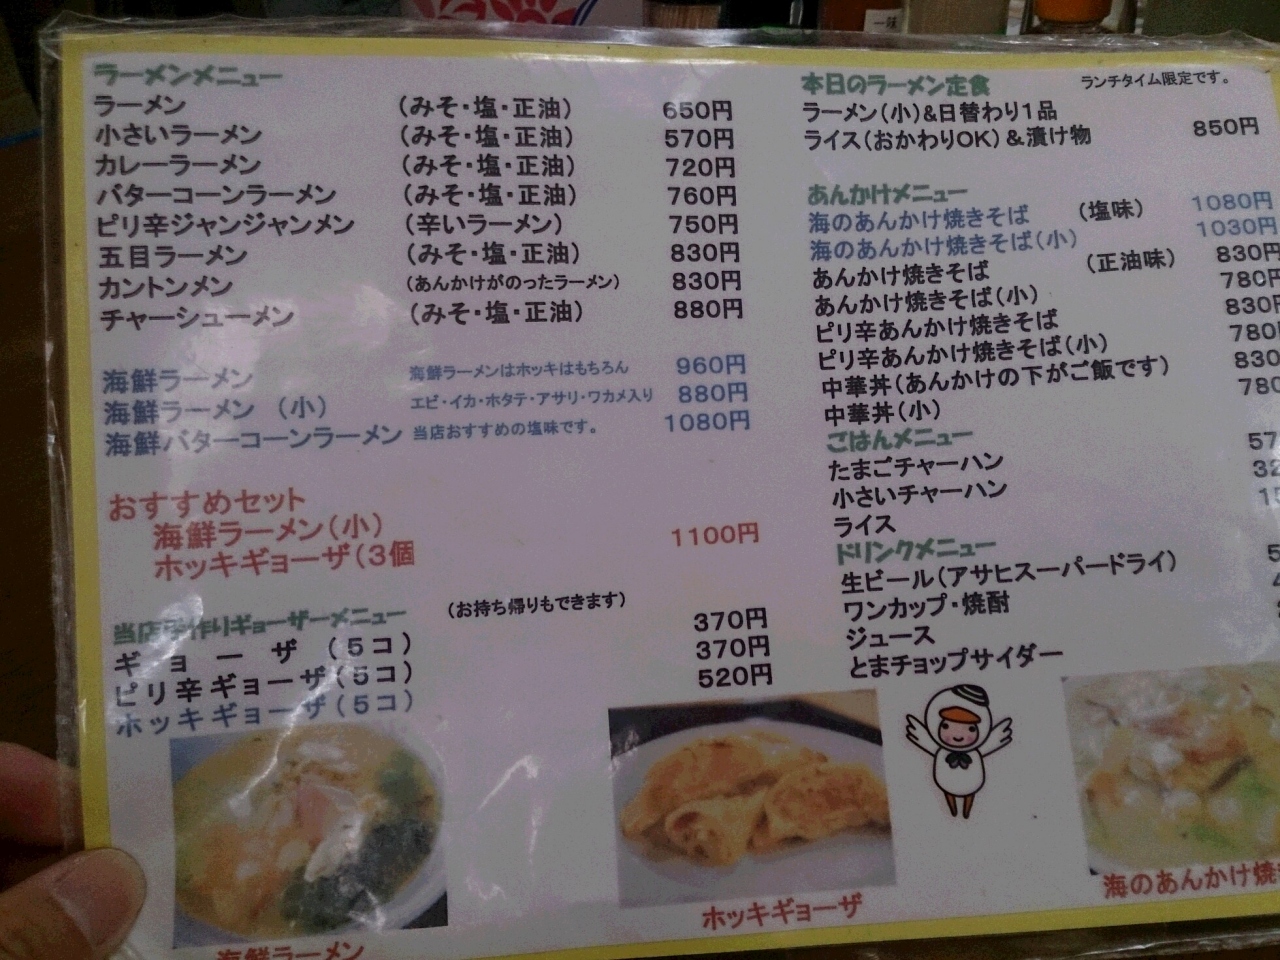 ラーメンメニュー
ラーメン (みそ・塩・正油) 650円
小さいラーメン (みそ・塩・正油) 570円
カレーラーメン (みそ・塩・正油) 720円
バターコーンラーメン (みそ・塩・正油) 760円
ピリ辛ジャンジャンメン (辛いラーメン) 750円
五目ラーメン (みそ・塩・正油) 830円
カントンメン (あんかけがのったラーメン) 830円
チャーシューメン (みそ・塩・正油) 880円
海鮮ラーメン 海鮮ラーメンはホッキはもちろん 960円
海鮮ラーメン (小) エビ・イカ・ホタテ・アサリ・ワカメ入り 880円
海鮮バターコーンラーメン 当店おすすめの塩味です。 1080円
おすすめセット
海鮮ラーメン(小)
ホッキギョーザ(3個 1100円
当店手作りギョーザーメニュー (お持ち帰りもできます)
ギョーザ (5コ) 370円
ピリ辛ギョーザ(5コ) 370円
ホッキギョーザ(5コ) 520円
海鮮ラーメン
ホッキギョーザ
本日のラーメン定食 ランチタイム限定です。
ラーメン(小)&日替わり1品
ライス(おかわりOK)&漬け物 850円
あんかけメニュー
海のあんかけ焼きそば (塩味) 1080円
海のあんかけ焼きそば(小) 1030円
あんかけ焼きそば (正油味) 830円
あんかけ焼きそば(小) 780円
ピリ辛あんかけ焼きそば 830円
ピリ辛あんかけ焼きそば(小) 780
中華丼(あんかけの下がご飯です) 830
中華丼(小) 780
ごはんメニュー
たまごチャーハン 57
小さいチャーハン 32
ライス
ドリンクメニュー
生ビール(アサヒスーパードライ) 5
ワンカップ・焼酎
ジュース
とまチョップサイダー
海のあんかけ焼き
一味